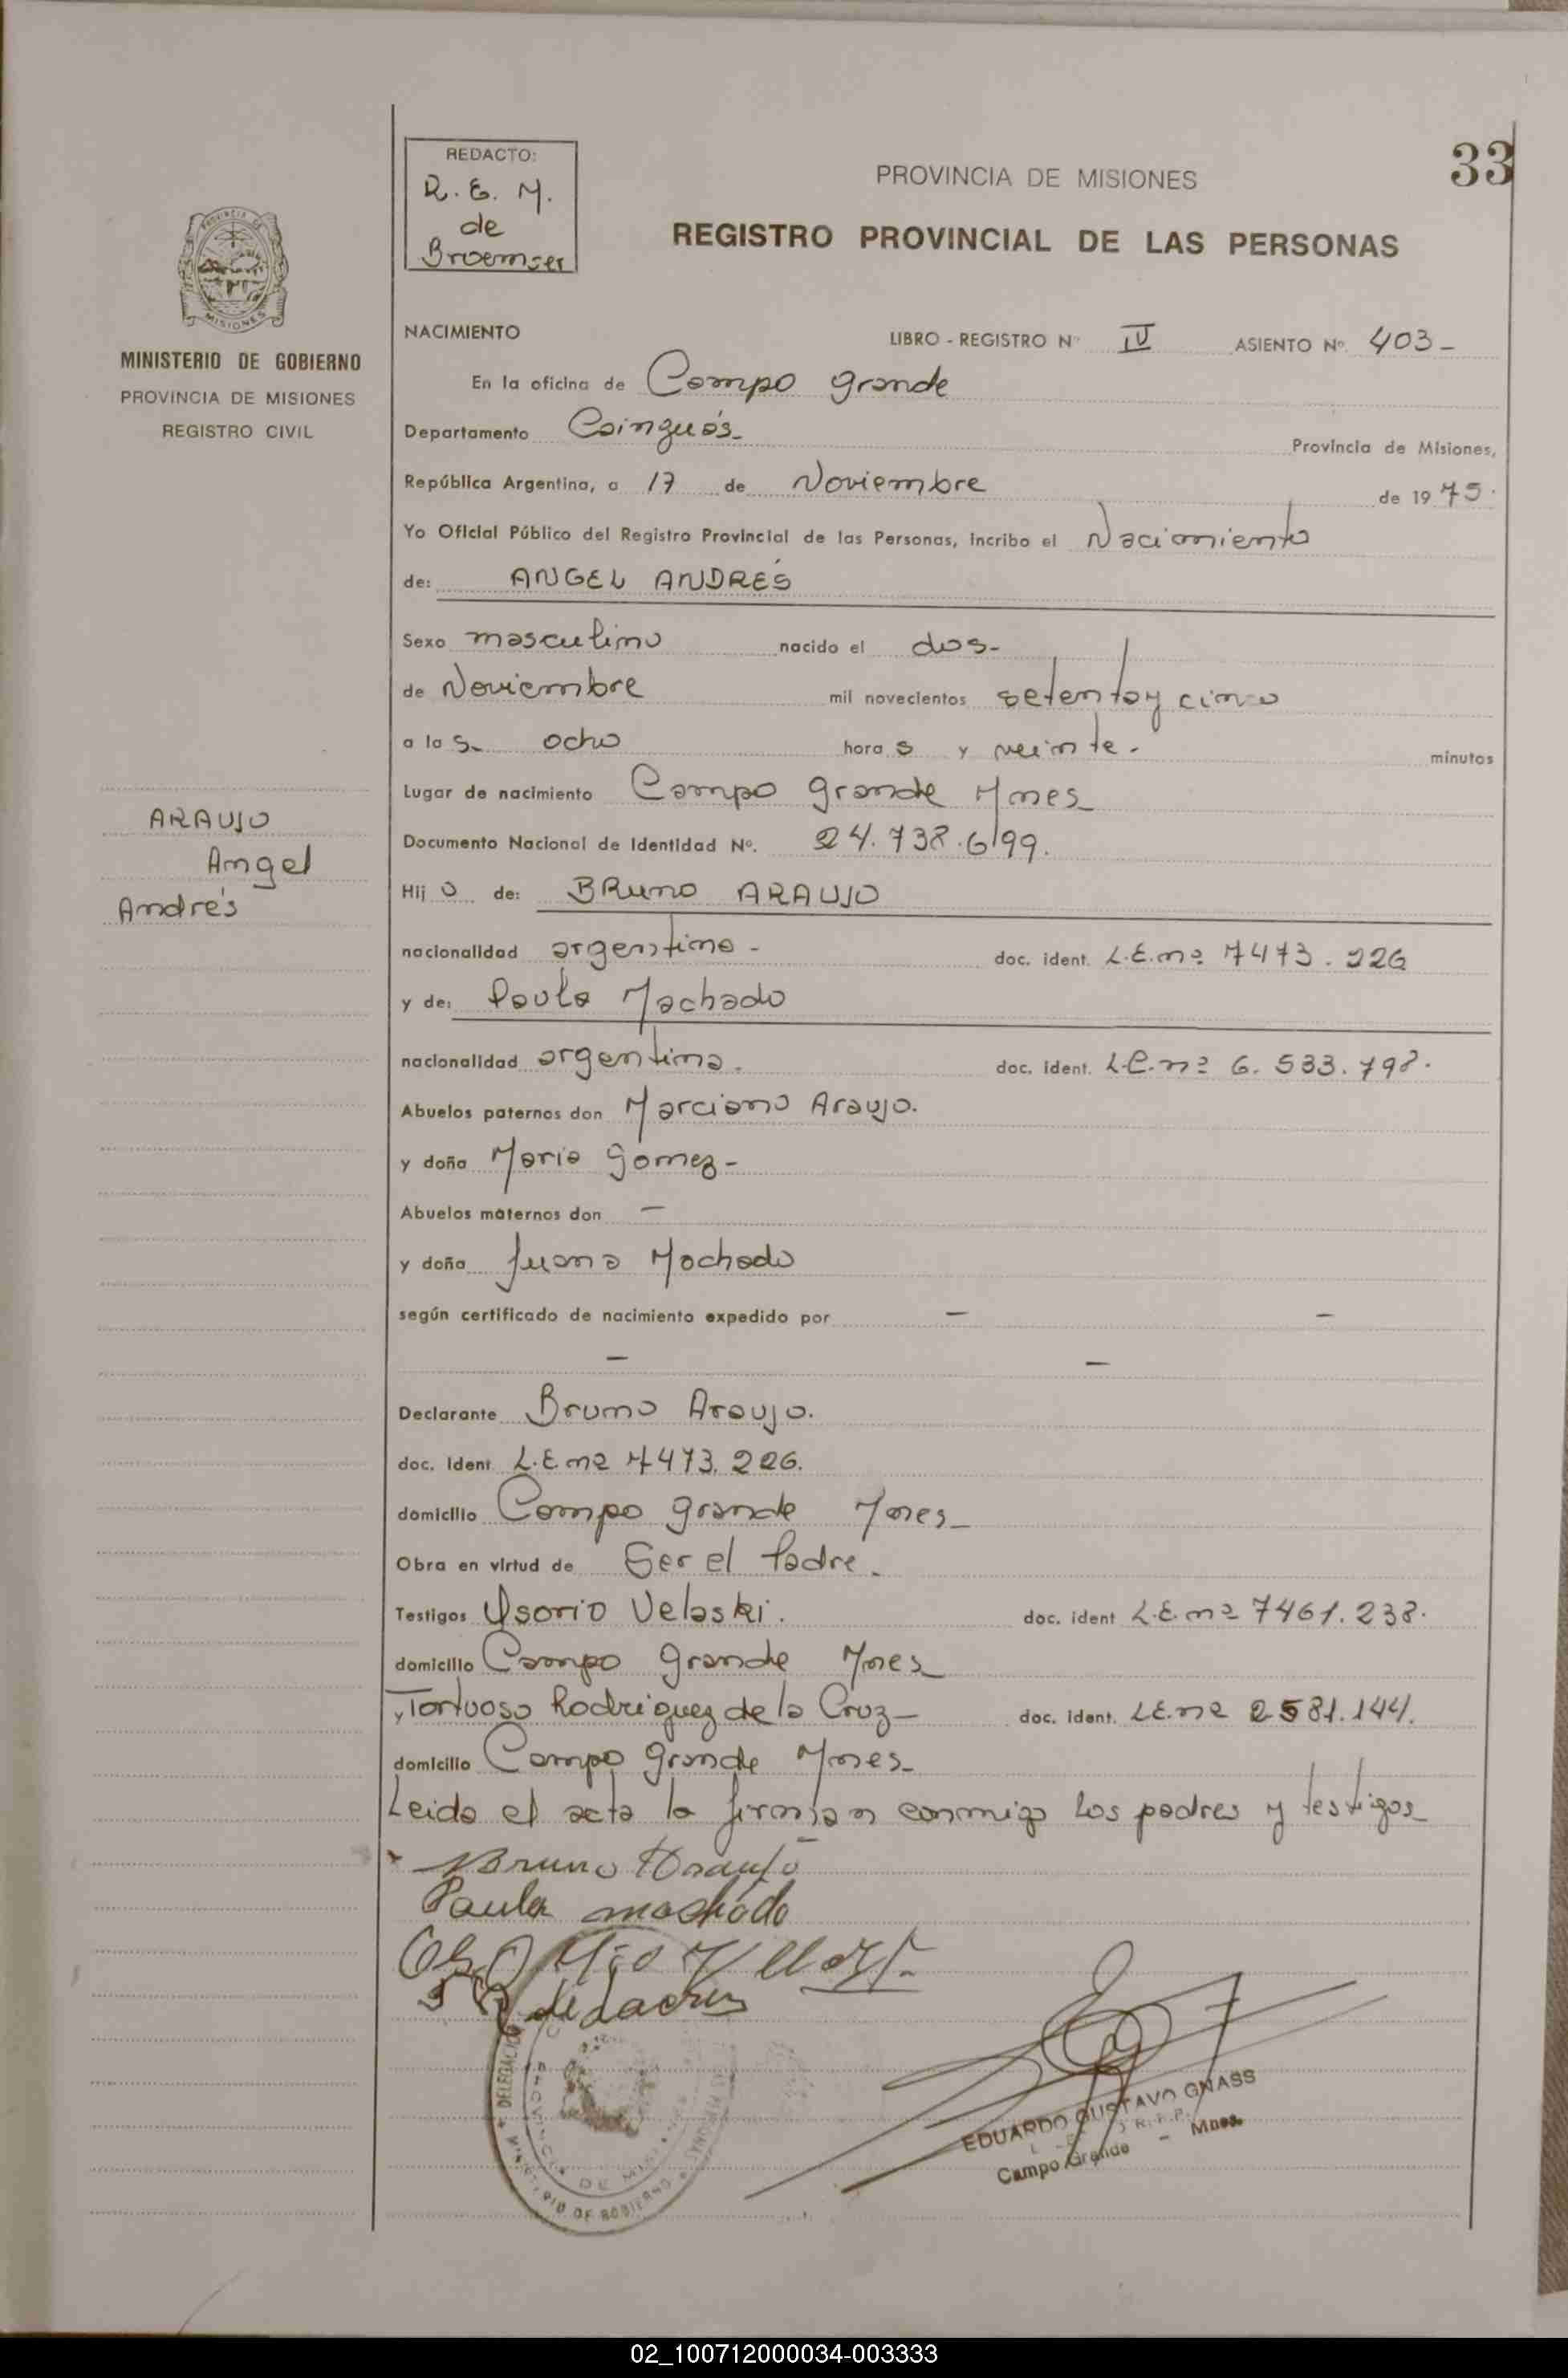 33
REDACTO:
R. E. M.
de
Broemser
PROVINCIA DE MISIONES
REGISTRO PROVINCIAL DE LAS PERSONAS
PROVINCIA DE
MISIONES
MINISTERIO DE GOBIERNO
PROVINCIA DE MISIONES
REGISTRO CIVIL
NACIMIENTO LIBRO - REGISTRO Nº IV ASIENTO Nº 403-
En la oficina de Campo grande
Departamento Cainguás- Provincia de Misiones,
República Argentina, a 17 de Noviembre de 1975.
Yo Oficial Público del Registro Provincial de las Personas, incribo el Nacimiento
de: ANGEL ANDRÉS
Sexo masculino nacido el dos-
de Noviembre mil novecientos setenta y cinco
a las ocho horas y veinte. minutos
Lugar de nacimiento Campo grande Mnes
Documento Nacional de Identidad Nº. 24.738.699.
Hijo de: BRUNO ARAUJO
nacionalidad argentina- doc. ident. L.E. nº 7473.226
y de: Paula Machado
nacionalidad argentina. doc. ident. L.C. nº 6.533.798.
Abuelos paternos don Marciano Araujo.
y doña Maria Gomez-
Abuelos maternos don -
y doña Juana Machado
según certificado de nacimiento expedido por - -
- -
Declarante Bruno Araujo.
doc. ident L.E. nº 7473.226.
domicilio Campo grande Mnes-
Obra en virtud de Ser el Padre.
Testigos Osorio Velaski. doc. ident L.E. nº 7461.238.
domicilio Campo grande Mnes
y Tortuoso Rodriguez de la Cruz- doc. ident. L.E. nº 2581.144.
domicilio Campo grande Mnes-
Leida el acta la firman conmigo los padres y testigos
Bruno Araujo
Paula machado
de la cruz
ARAUJO
Angel
Andrés
DELEGACION
PROVINCIA DE MISIONES
MINISTERIO DE GOBIERNO
EDUARDO GUSTAVO GNASS
Campo Grande - Mnes.
02_100712000034-003333